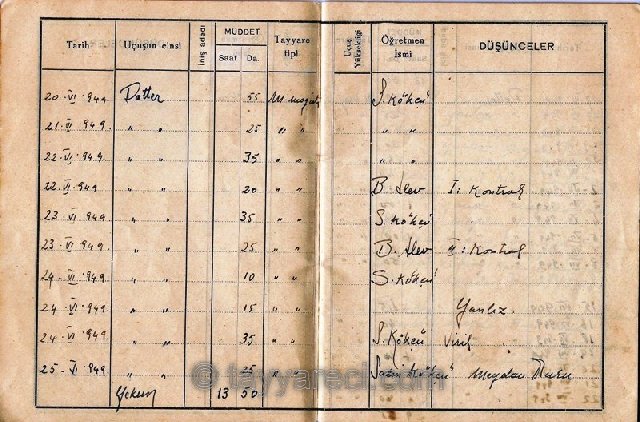 Tarih Uçuşun cinsi İniş adedi MÜDDET Saat Da. Tayyare tipi Uçuş Yüksekliği Öğretmen ismi DÜŞÜNCELER
20-VI-949 55 S. Kökcü
21-VI-949 " " 25 " " " "
22-VI-949 " " 35 " " " "
22-VI-949 " " 20 " " B. Alev I: Kontrol
23-VI-949 " " 35 " " S. Kökcü
23-VI-949 " " 25 " " B. Alev II: Kontrol
24-VI-949 " " 10 " " S. Kökcü
24-VI-949 " " 15 " " Yanlız.
24-VI-949 " " 35 " " S. Kökcü Viril
25-V-949 " " 25 " " Kökcü meydan
Yekun 13 50